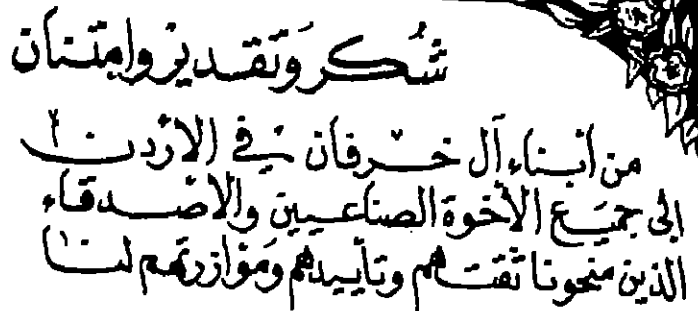 شُكر وَتقدير وامتنان
من أبناء آل خرفان في الأردن
الى جميَع الأخوة الصناعيين والأصدقاء
الذين منحونا ثقتاهم وتأييدهم ومؤازرتهم لنا